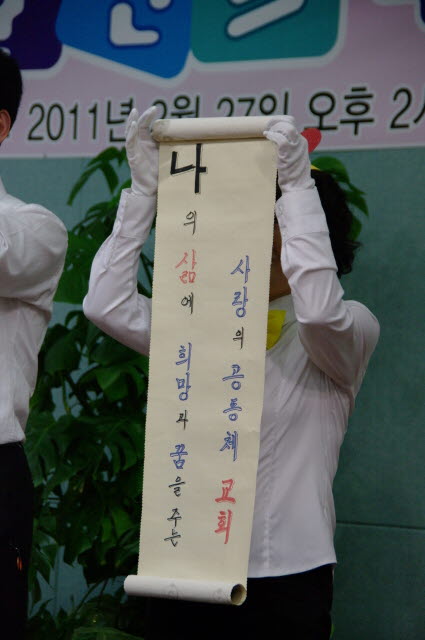 2011년 2월 27일 오후 2시
나의 삶에 희망과 꿈을 주는
사랑의 공동체 교회